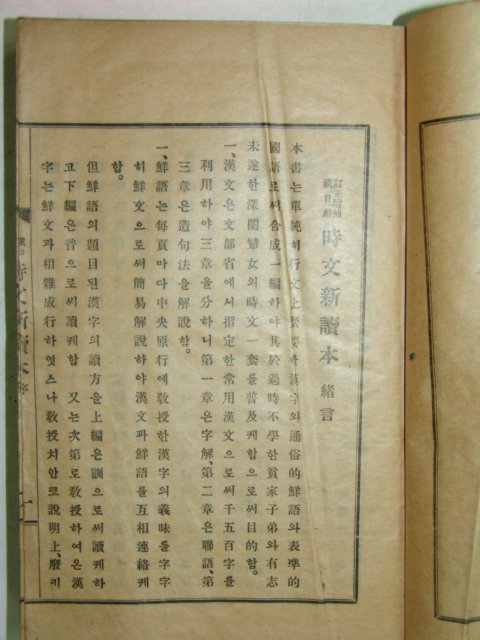 訂正增補
漢日鮮
時文新讀本 緖言
本書는單純히行文上緊要한漢字와通俗的鮮語와表準的
國語로써合成一編하야其於過時不學한貧家子弟와有志
未遂한深閨婦女의時文一套를普及케함으로써目的함。
一、漢文은文部省에서指定한常用漢文으로써千五百字를
利用하야三章을分하니第一章은字解、第二章은聯語、第
三章은造句法을解說함。
一、鮮語는每頁마다中央原行에敎授한漢字의義味를字字
히鮮文으로써簡易解說하야漢文과鮮語를互相連絡케
함。
但鮮語의題目된漢字의讀方을上編은訓으로써讀케하
고下編은音으로써讀케함 又는次第로敎授하여온漢
字는鮮文과相雜成行하엿스나敎授치안코說明上、廢치
時文新讀本 序